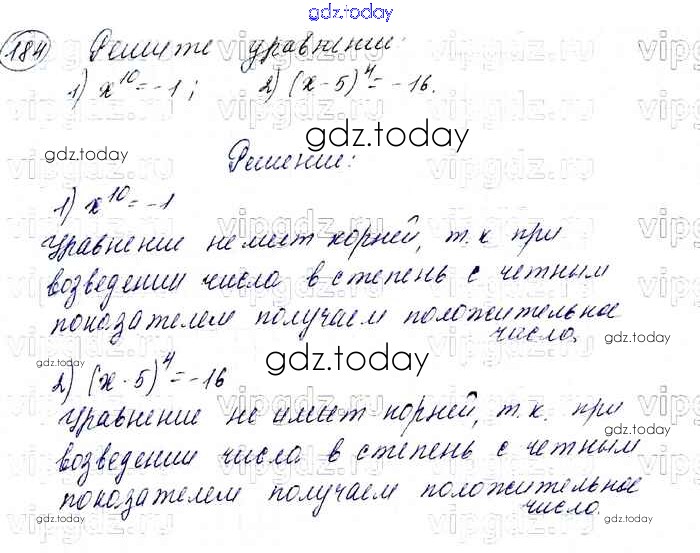 gdz.today
184 Решите уравнение:
1) x¹⁰ = -1; 2) (x - 5)⁴ = -16.
gdz.today
gdz.today
Решение:
1) x¹⁰ = -1
gdz.today
Уравнение не имеет корней, т.к при
возведении числа в степень с четным
показателем получаем положительное
число.
gdz.today
gdz.today
2) (x - 5)⁴ = -16
Уравнение не имеет корней, т.к. при
gdz.today
возведении числа в степень с четным
показателем получаем положительное
число.
gdz.today
gdz.today